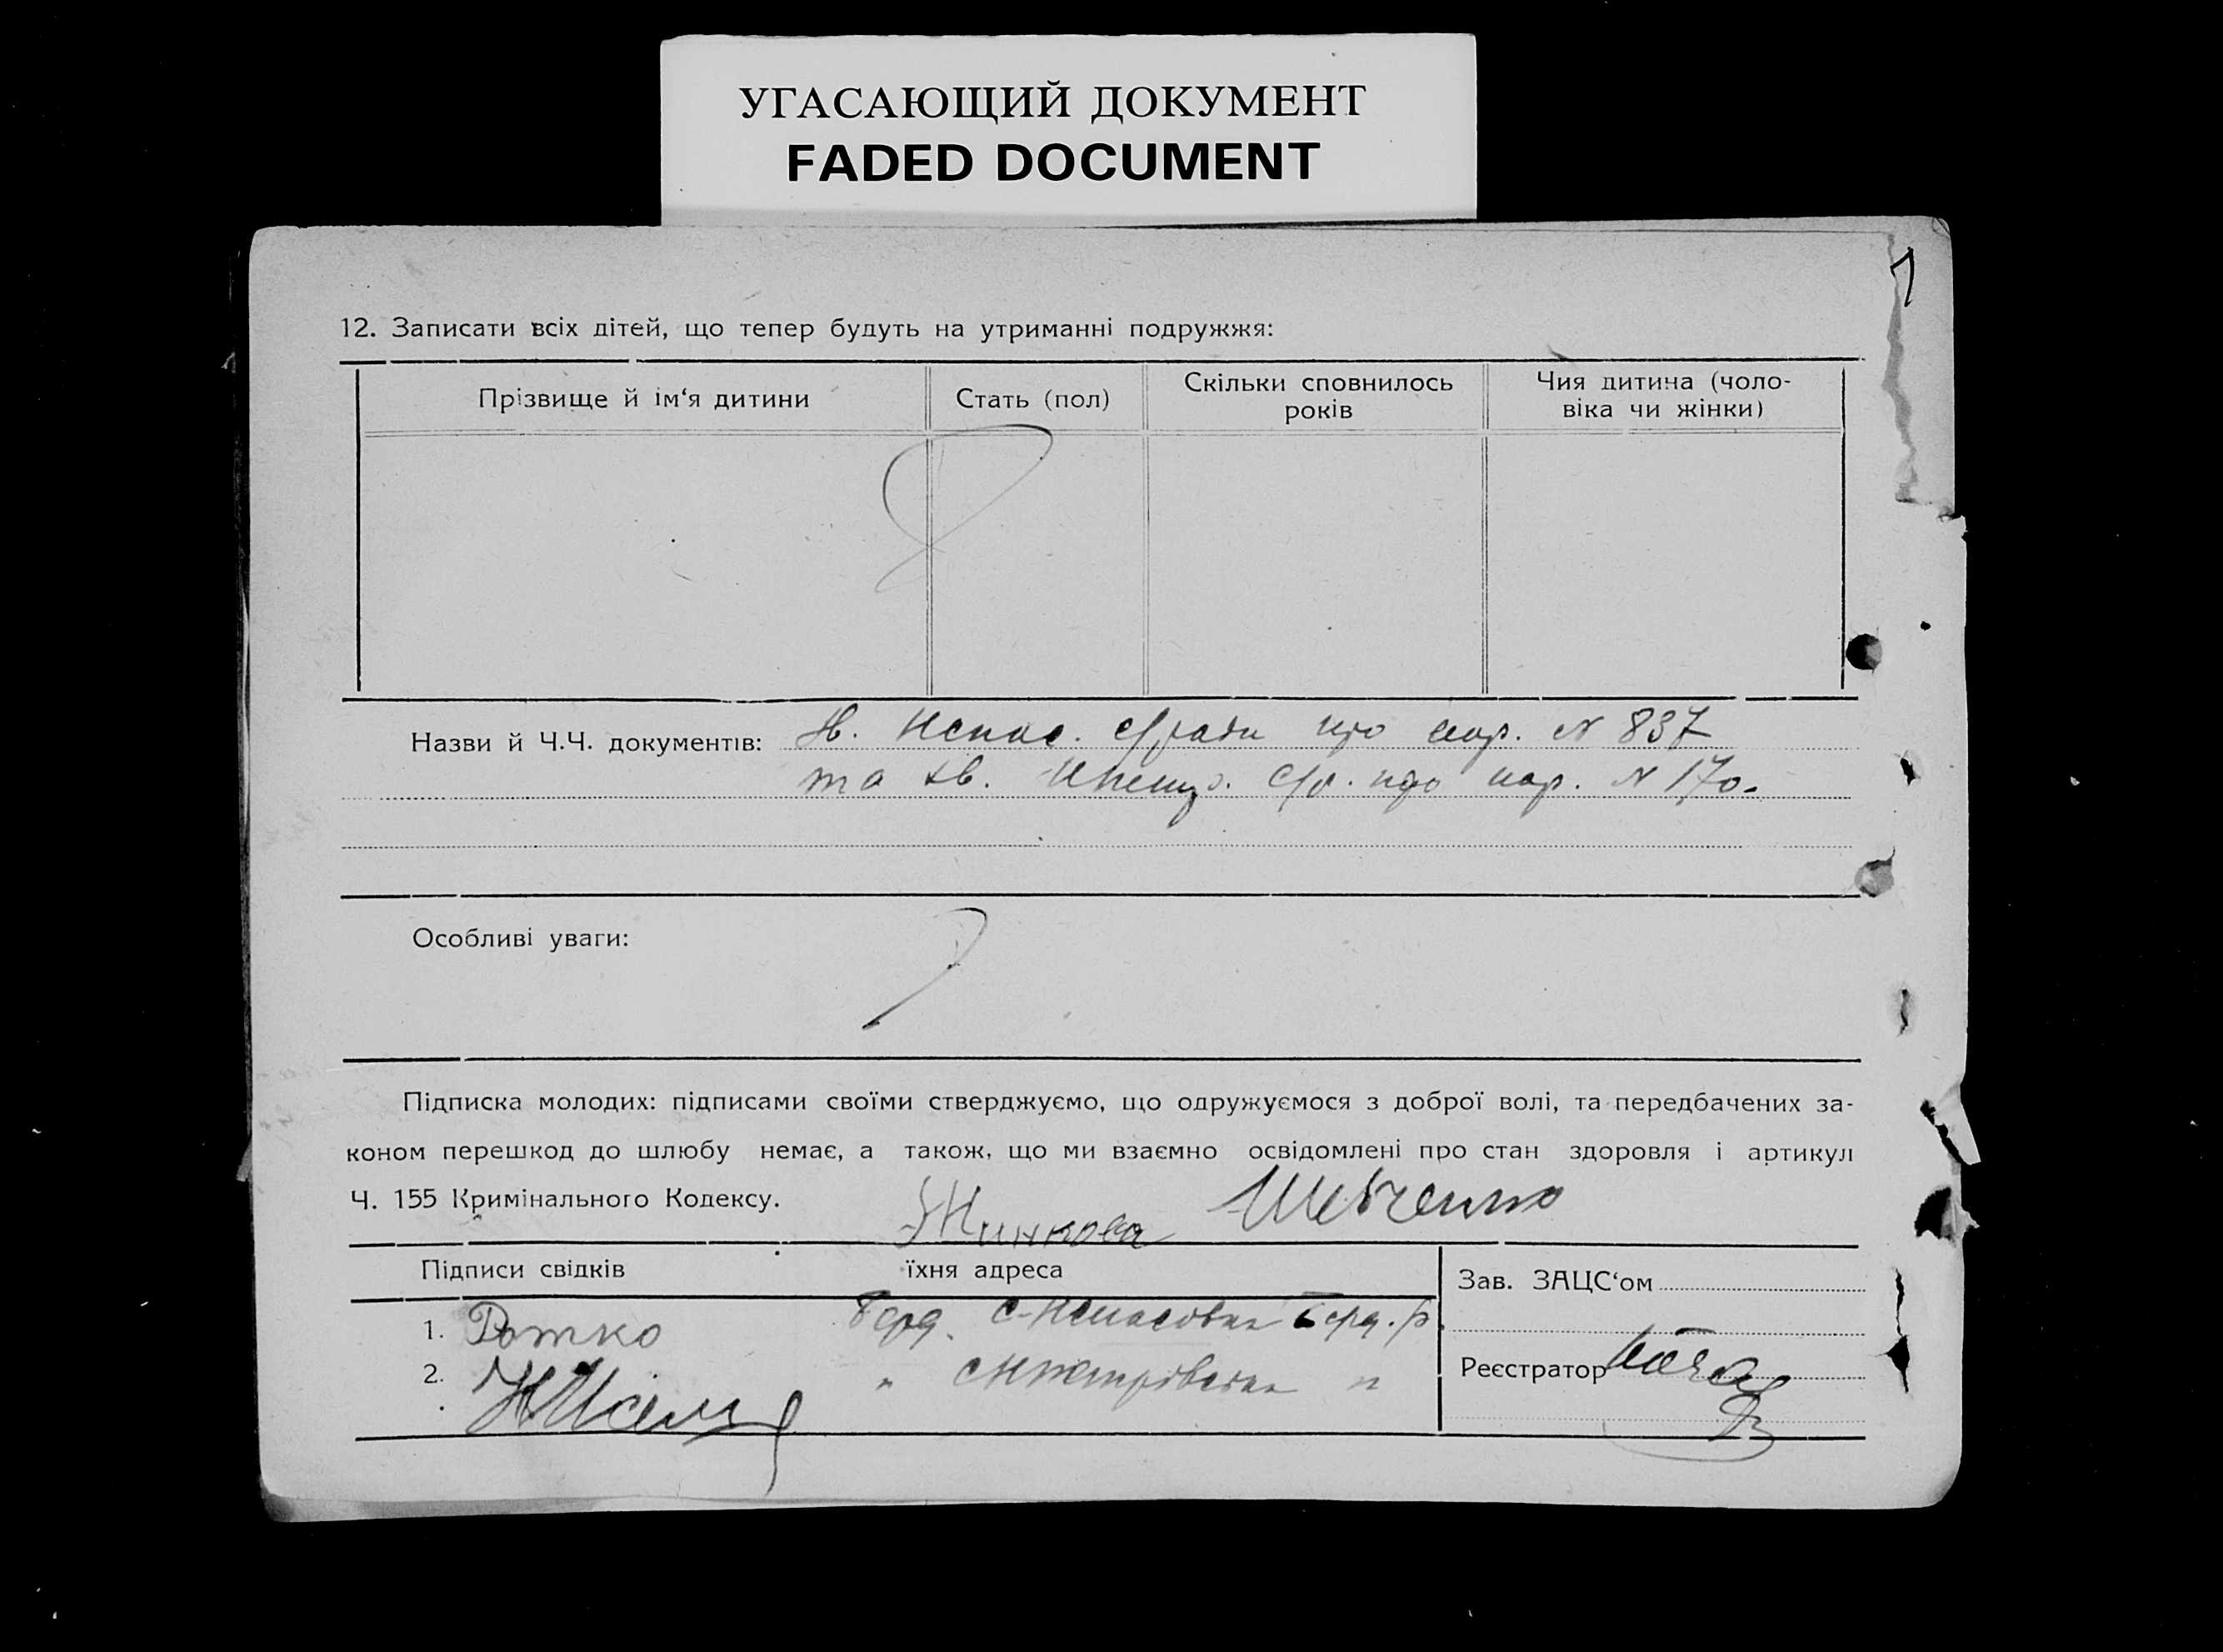 УГАСАЮЩИЙ ДОКУМЕНТ
FADED DOCUMENT
12. Записати всіх дітей, що тепер будуть на утриманні подружжя:
Прізвище й ім‘я дитини
Стать (пол)
Скільки сповнилось
років
Чия дитина (чоло-
віка чи жінки)
Назви й Ч.Ч. документів:
про N 837
та про N 170.
Особливі уваги:
Підписка молодих: підписами своїми стверджуємо, що одружуємося з доброї волі, та передбачених за-
коном перешкод до шлюбу немає, а також, що ми взаємно освідомлені про стан здоровля і артикул
Ч. 155 Кримінального Кодексу.
Шевченко
Підписи свідків
їхня адреса
Зав. ЗАЦС‘ом
1. Ротко
2.
Реєстратор